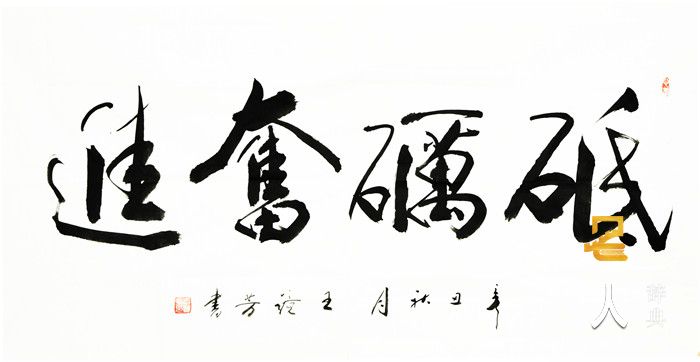 砥礪奮進
辛丑秋月 王 芳書
名人辞典